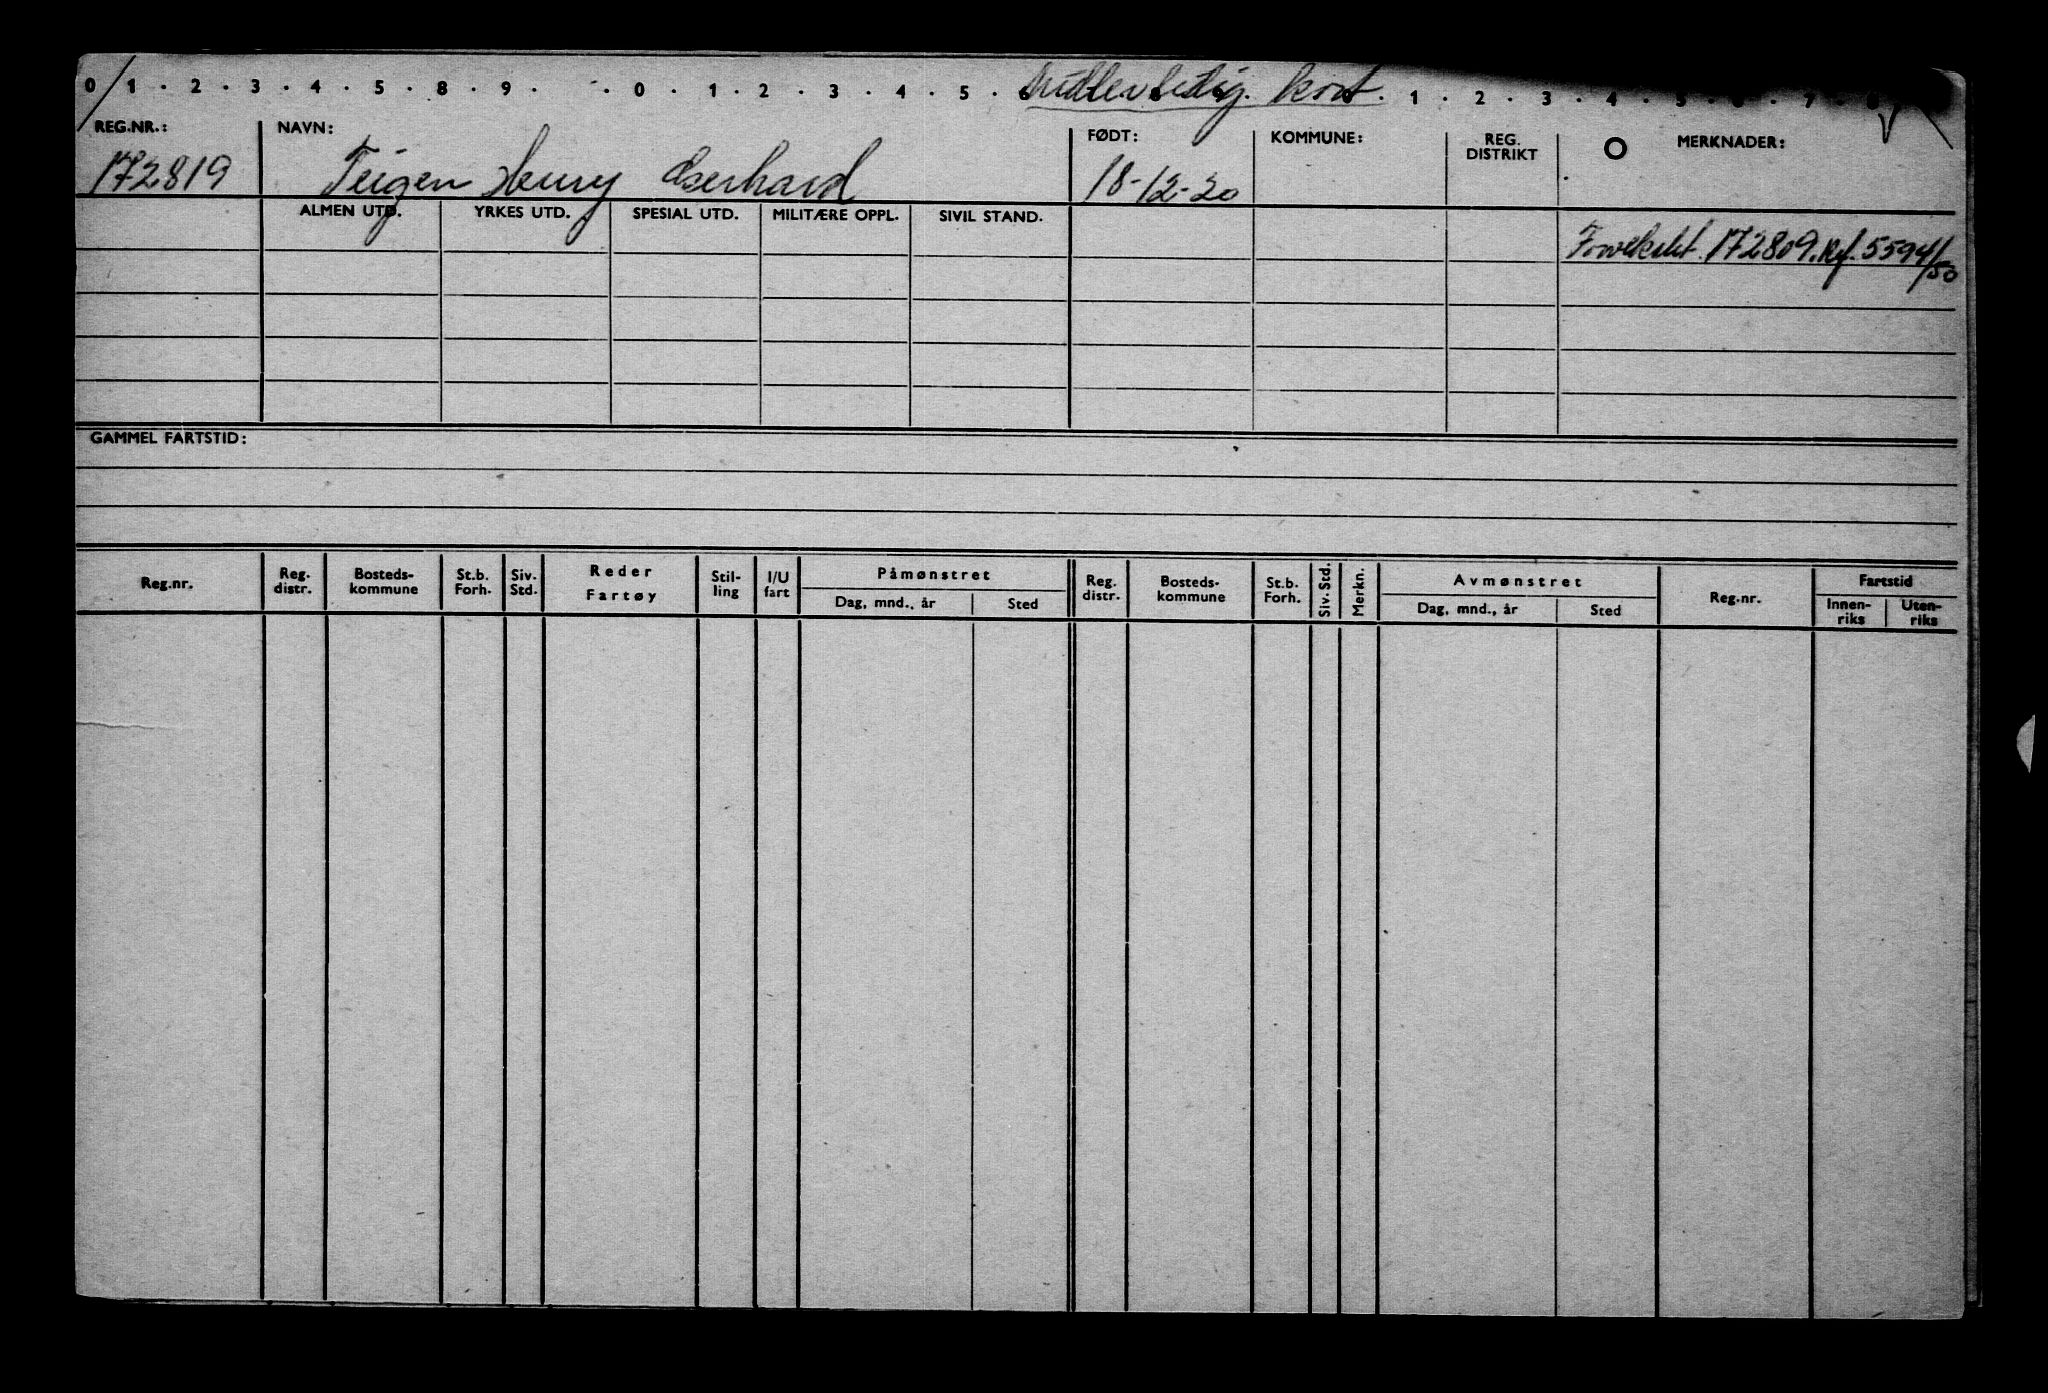 0 . 1 . 2 . 3 . 4 . 5 . 8 . 9 . . 0 . 1 . 2 . 3 . 4 . 5 . 6 Midlertidig. kort. 1 . 2 . 3 . 4 . 5 . 6 . 7 . 8
REG.NR.: NAVN: FØDT: KOMMUNE: REG. DISTRIKT O MERKNADER:
172819 Teigen Henry 18-12-20
ALMEN UTD. YRKES UTD. SPESIAL UTD. MILITÆRE OPPL. SIVIL STAND.
Forvekslet. 172809. Ref. 5594/50
GAMMEL FARTSTID:
Reg.nr. Reg. distr. Bosteds-kommune St.b. Forh. Siv. Std. Reder Fartøy Stil-ling I/U fart Påmønstret Dag, mnd., år Sted Reg. distr. Bosteds-kommune St.b. Forh. Siv. Std. Merkn. Avmønstret Dag, mnd., år Sted Reg.nr. Fartstid Innen-riks Uten-riks